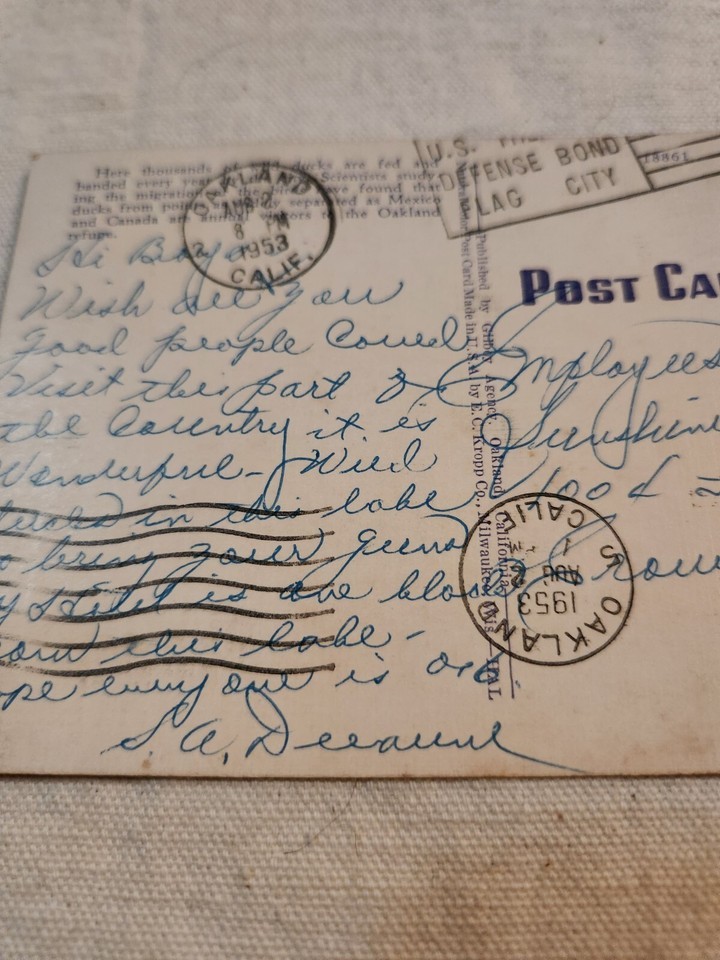 Here thousands of wild ducks are fed and
banded every year. Scientists study-
ing the migration of the birds have found that
ducks from points as widely separated as Mexico
and Canada are annual visitors to the Oakland
refuge.
OAKLAND
8 PM
1953
CALIF.
U.S.
DEFENSE BOND
FLAG CITY
18861
POST CA
Published by Gilboy Agency, Oakland, California
Post Card Made in U.S.A. by E. C. Kropp Co., Milwaukee, Wis.
Hi Boys
Wish all you
good people could
Visit this part of
the Country it is
Wonderful - Wild
ducks in this lake
so bring your guns
My Hotel is one block
from this lake -
ope every one is ok
S. A.
Employees
Sunshin
100
OAKLAND
5
CALIF.
AUG
1
1953